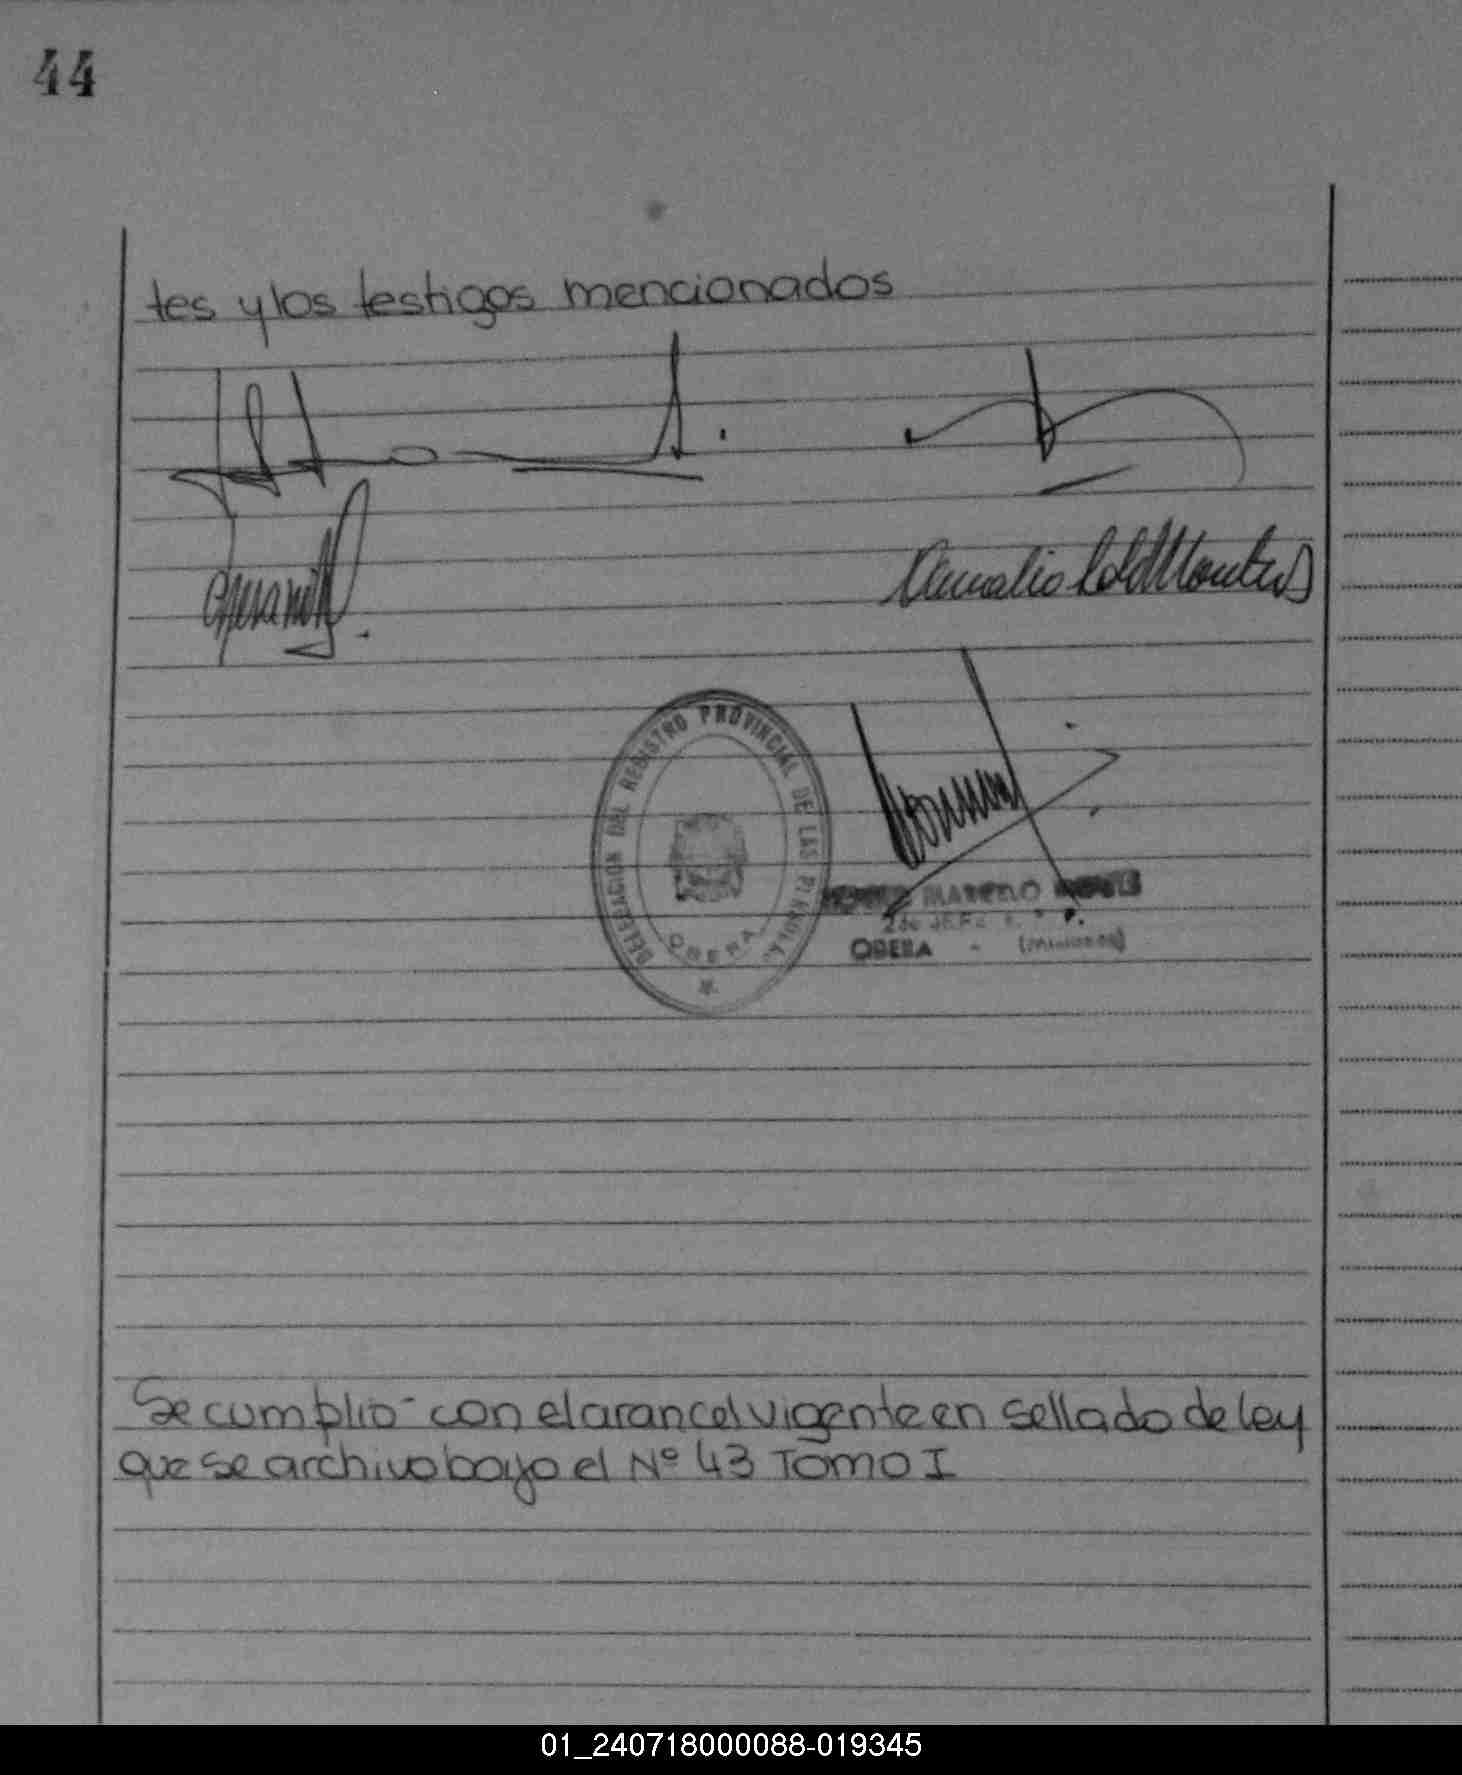 44
tes y los testigos mencionados
DELEGACION DEL REGISTRO PROVINCIAL DE LAS PERSONAS
OBERA
MARCELO
2do JEFE
OBERA - (Misiones)
Se cumplio con el arancel vigente en sellado de ley
que se archivo bajo el Nº 43 Tomo I
01_240718000088-019345